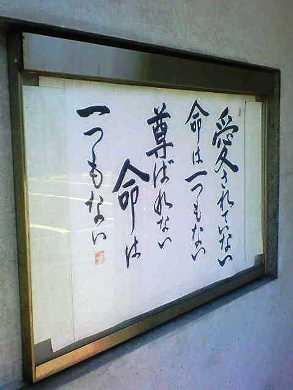 愛されていない
命は一つもない
尊ばれない
命は
一つもない